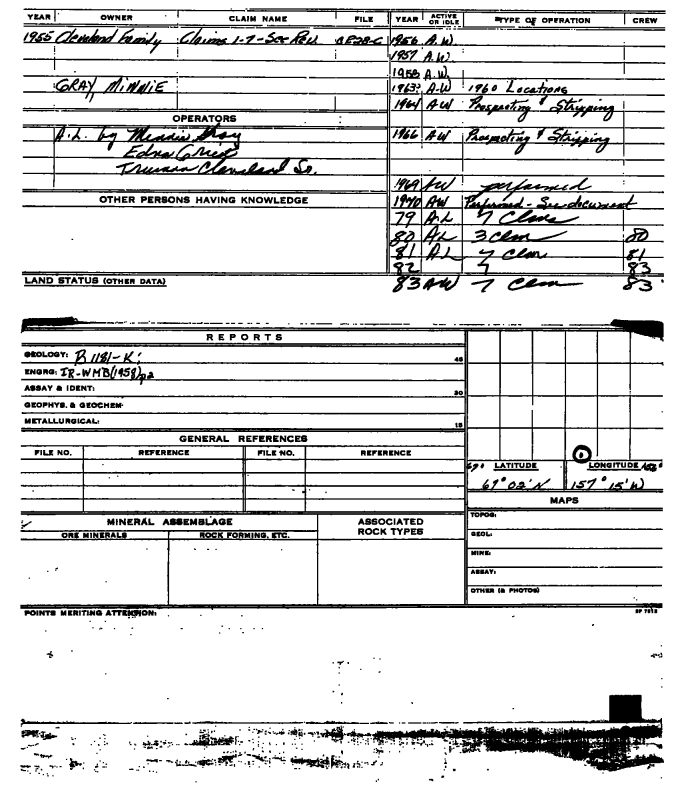 YEAR OWNER CLAIM NAME FILE YEAR ACTIVE OR IDLE TYPE OF OPERATION CREW
1955 Cleveland Family Claims 1-7-See Rev. 1956 A.W.
1957 A.W.
1958 A.W.
GRAY, MINNIE A.W 1960 Locations
1964 A.W Prospecting & Stripping
OPERATORS
A.L. by Minnie Gray 1966 AW Prospecting & Stripping
Edna
Truman Cleveland Sr.
1969 AW performed
OTHER PERSONS HAVING KNOWLEDGE 1970 AW Performed - See document
79 A.L 7
80 AL 3 clm 80
81 AL 7 clm 81
82 7 83
LAND STATUS (OTHER DATA) 83 AW 7 clm 83
REPORTS
GEOLOGY: B 1181-K; 45
ENGRG: IR-WMB(1958)p2
ASSAY & IDENT: 30
GEOPHYS. & GEOCHEM.
METALLURGICAL: 15
GENERAL REFERENCES
FILE NO. REFERENCE FILE NO. REFERENCE
67° LATITUDE LONGITUDE
67° 02' N 157° 15' W
MAPS
MINERAL ASSEMBLAGE ASSOCIATED ROCK TYPES TOPOG:
ORE MINERALS ROCK FORMING, ETC. GEOL:
MINE:
ASSAY:
OTHER (& PHOTOS)
POINTS MERITING ATTENTION: